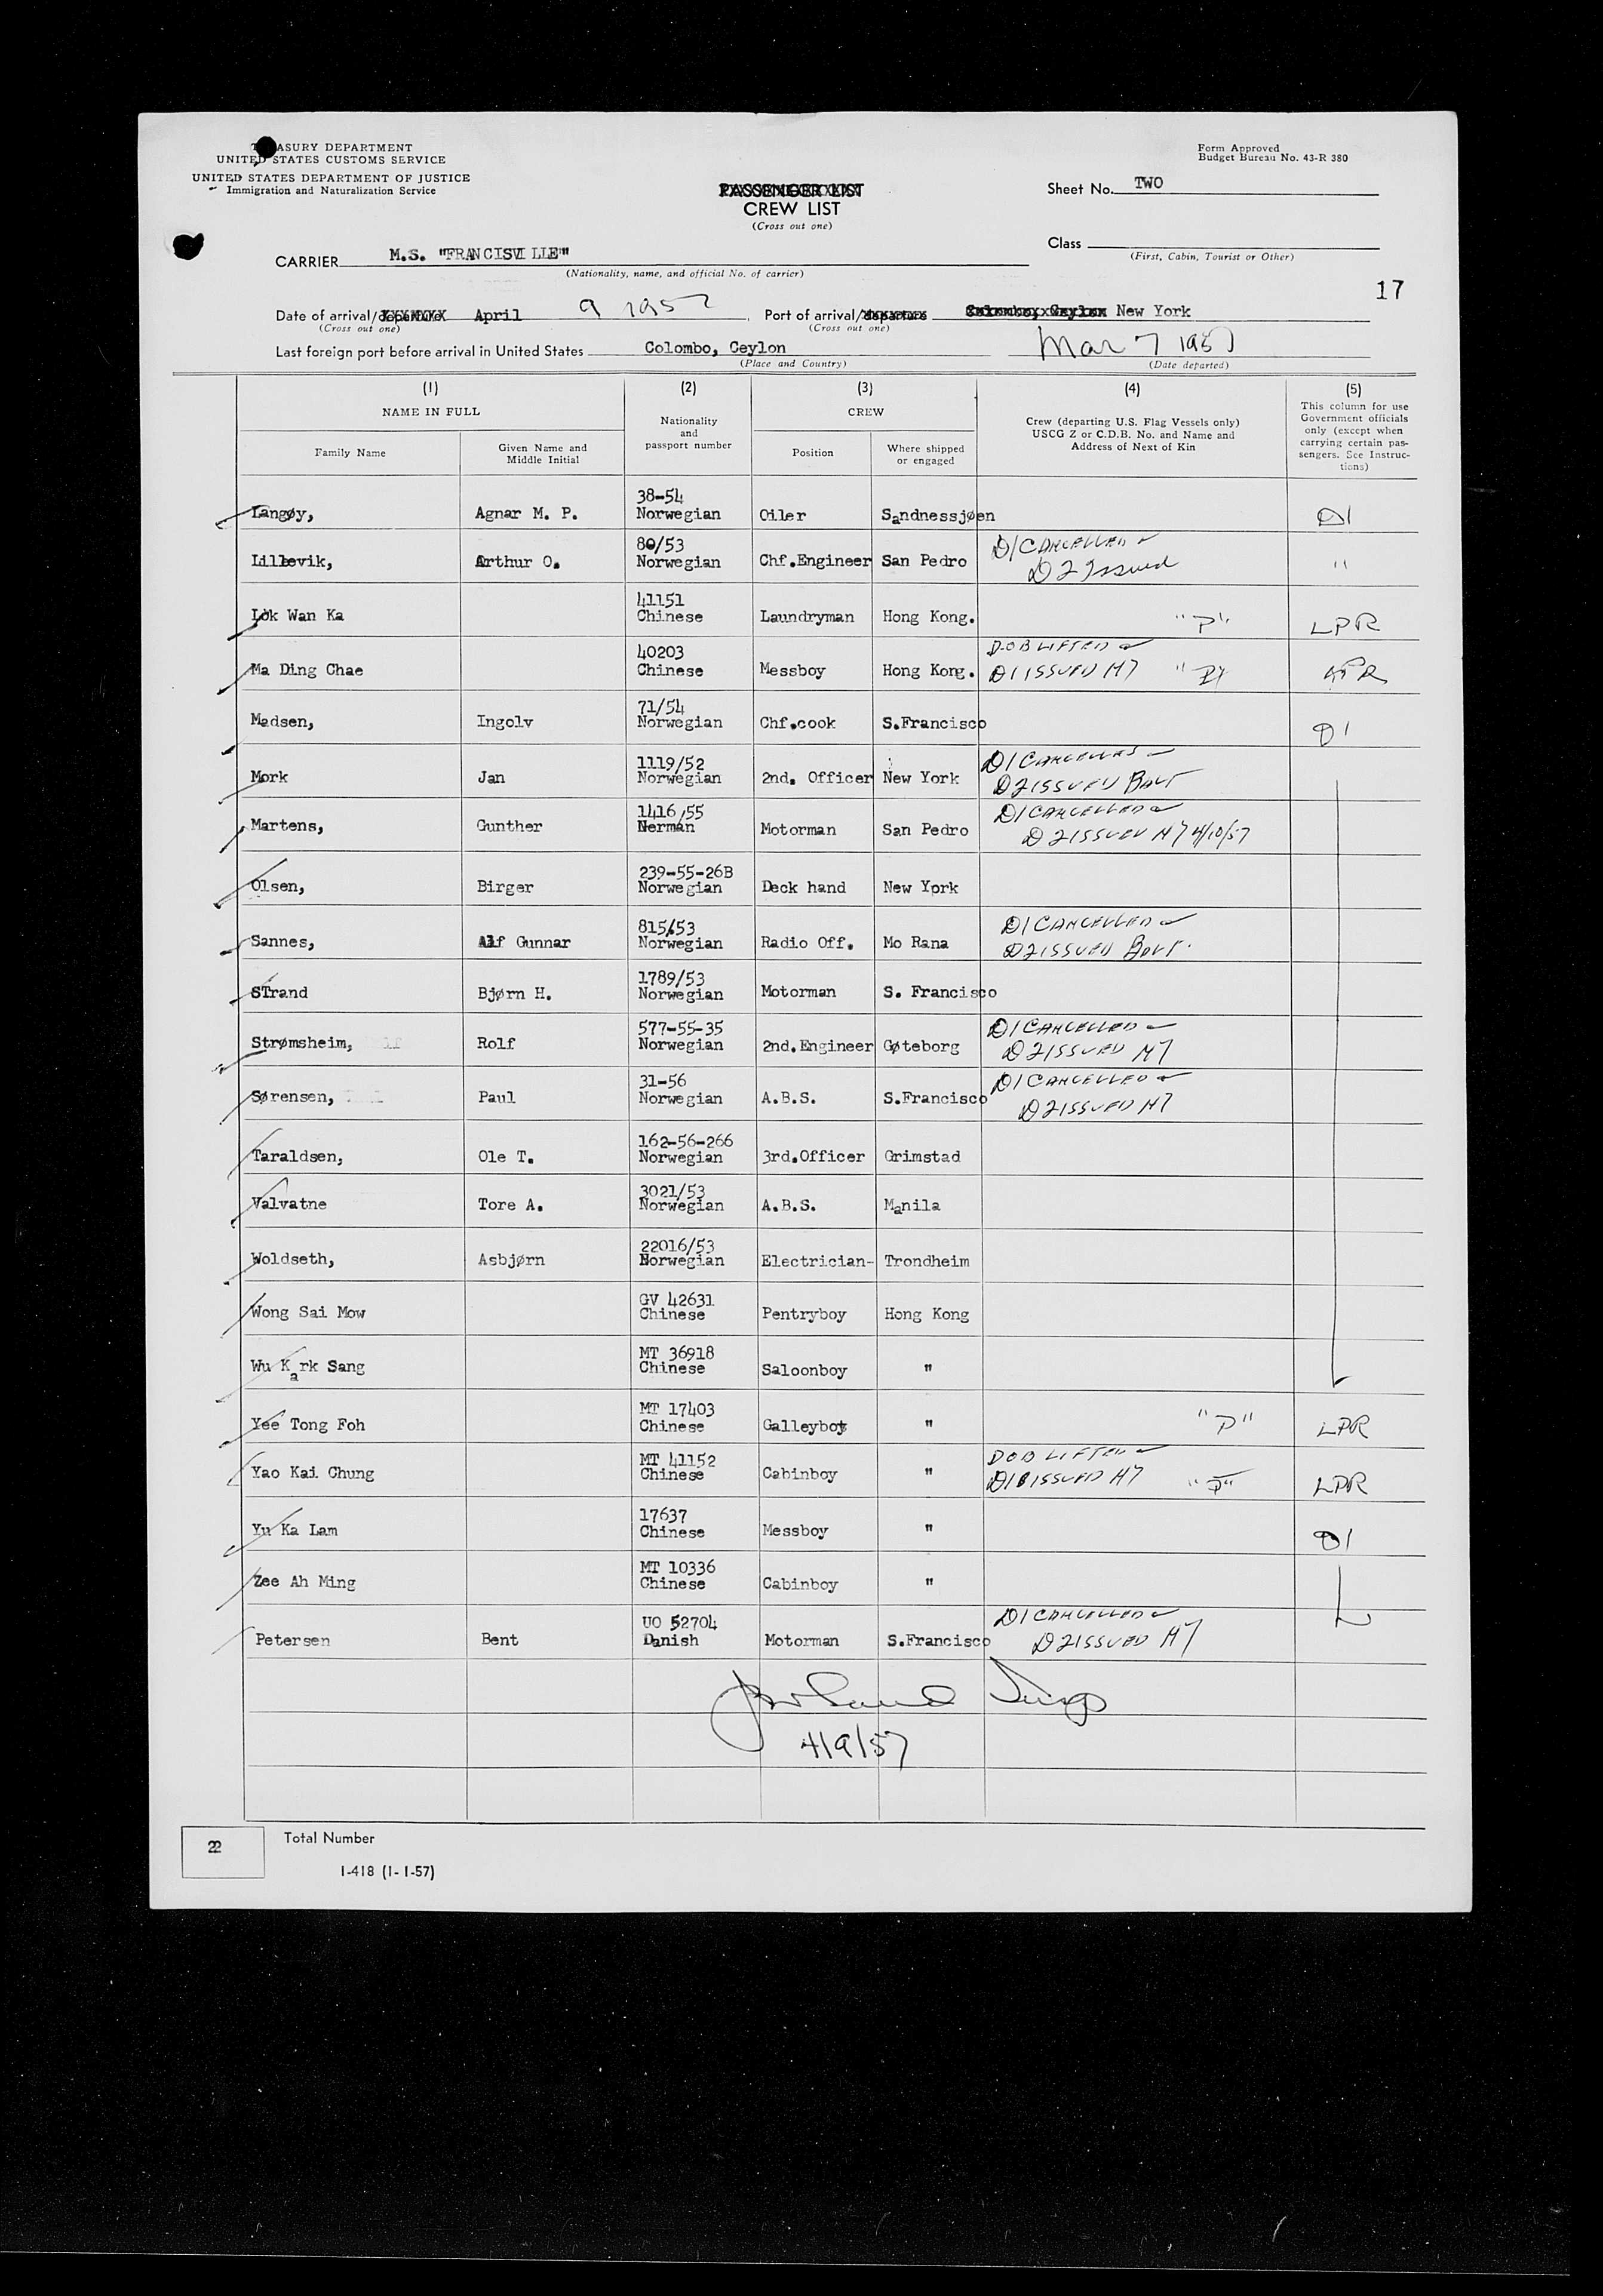 TREASURY DEPARTMENT
UNITED STATES CUSTOMS SERVICE
UNITED STATES DEPARTMENT OF JUSTICE
Immigration and Naturalization Service
Form Approved
Budget Bureau No. 43-R 380
PASSENGER LIST
CREW LIST
(Cross out one)
Sheet No. TWO
Class
(First, Cabin, Tourist or Other)
CARRIER M.S. "FRANCISVILLE"
(Nationality, name, and official No. of carrier)
17
Date of arrival/departure April 9 1957 Port of arrival/departure Colombo, Ceylon New York
(Cross out one) (Cross out one)
Last foreign port before arrival in United States Colombo, Ceylon Mar 7 1957
(Place and Country) (Date departed)
(1) (2) (3) (4) (5)
NAME IN FULL
Family Name
Given Name and Middle Initial
Nationality and passport number
CREW
Position
Where shipped or engaged
Crew (departing U.S. Flag Vessels only)
USCG Z or C.D.B. No. and Name and
Address of Next of Kin
This column for use
Government officials
only (except when
carrying certain pas-
sengers. See Instruc-
tions)
38-54
Langøy, Agnar M. P. Norwegian Oiler Sandnessjøen D1
80/53 D1 CANCELLED
Lillevik, Arthur O. Norwegian Chf.Engineer San Pedro D2 Issued "
41151
Lok Wan Ka Chinese Laundryman Hong Kong. "P" LPR
40203 DOB LIFTED
Ma Ding Chae Chinese Messboy Hong Kong. D1 ISSUED LPR
71/54
Madsen, Ingolv Norwegian Chf.cook S.Francisco D1
1119/52 D1 CANCELLED
Mork Jan Norwegian 2nd. Officer New York D2 ISSUED
1416/55 D1 CANCELLED
Martens, Gunther Nerman Motorman San Pedro D2 ISSUED 4/10/57
239-55-26B
Olsen, Birger Norwegian Deck hand New York
815/53 D1 CANCELLED
Sannes, Alf Gunnar Norwegian Radio Off. Mo Rana D2 ISSUED
1789/53
STrand Bjørn H. Norwegian Motorman S. Francisco
577-55-35 D1 CANCELLED
Strømsheim, Rolf Norwegian 2nd.Engineer Gøteborg D2 ISSUED
31-56 D1 CANCELLED
Sørensen, Paul Norwegian A.B.S. S.Francisco D2 ISSUED
162-56-266
Taraldsen, Ole T. Norwegian 3rd.Officer Grimstad
3021/53
Valvatne Tore A. Norwegian A.B.S. Manila
22016/53
Woldseth, Asbjørn Norwegian Electrician- Trondheim
GV 42631
Wong Sai Mow Chinese Pentryboy Hong Kong
MT 36918
Wu Kark Sang Chinese Saloonboy "
MT 17403
Yee Tong Foh Chinese Galleyboy " "P" LPR
MT 41152 DOB LIFTED
Yao Kai Chung Chinese Cabinboy " D1 ISSUED "P" LPR
17637
Yu Ka Lam Chinese Messboy " D1
MT 10336
Zee Ah Ming Chinese Cabinboy "
UO 52704 D1 CANCELLED
Petersen Bent Danish Motorman S.Francisco D2 ISSUED
4/9/57
22 Total Number
I-418 (1-1-57)